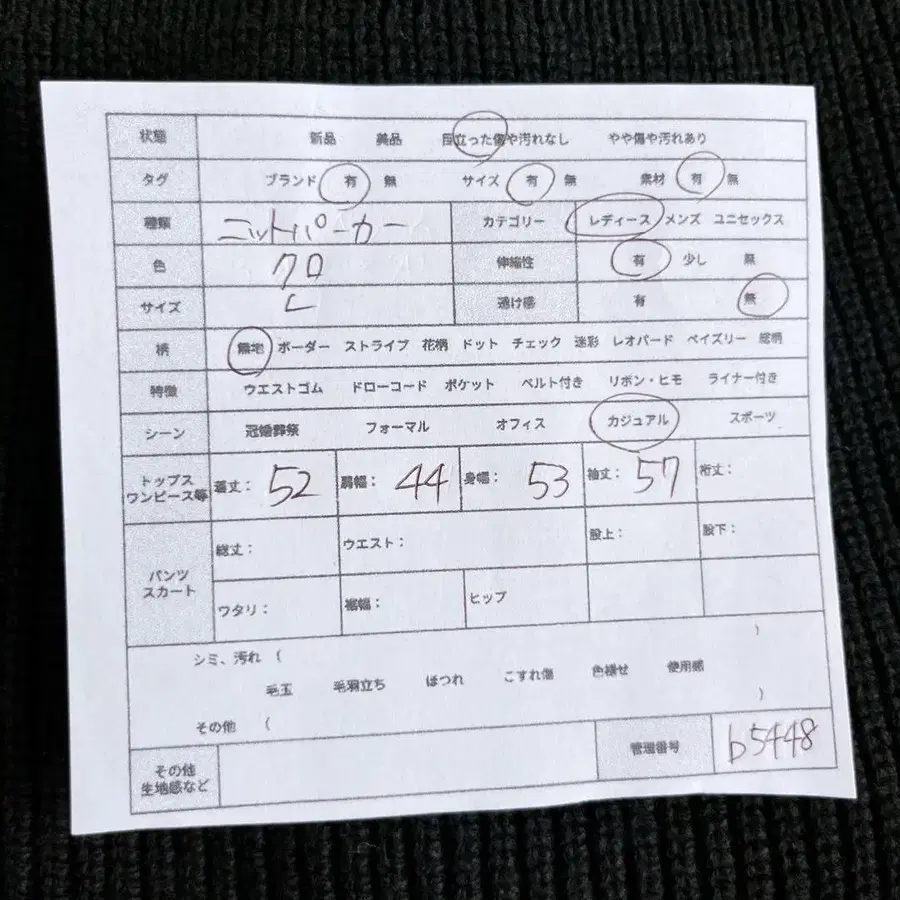 状態 新品 美品 目立った傷や汚れなし やや傷や汚れあり
タグ ブランド 有 無 サイズ 有 無 素材 有 無
種類 ニットパーカー カテゴリー レディース メンズ ユニセックス
色 クロ 伸縮性 有 少し 無
サイズ L 透け感 有 無
柄 無地 ボーダー ストライプ 花柄 ドット チェック 迷彩 レオパード ペイズリー 総柄
特徴 ウエストゴム ドローコード ポケット ベルト付き リボン・ヒモ ライナー付き
シーン 冠婚葬祭 フォーマル オフィス カジュアル スポーツ
トップス
ワンピース等 着丈: 52 肩幅: 44 身幅: 53 袖丈: 57 裄丈:
パンツ
スカート 総丈: ウエスト: 股上: 股下:
ワタリ: 裾幅: ヒップ
シミ、汚れ ( )
毛玉 毛羽立ち ほつれ こすれ傷 色褪せ 使用感
その他 ( )
その他
生地感など 管理番号 b5448